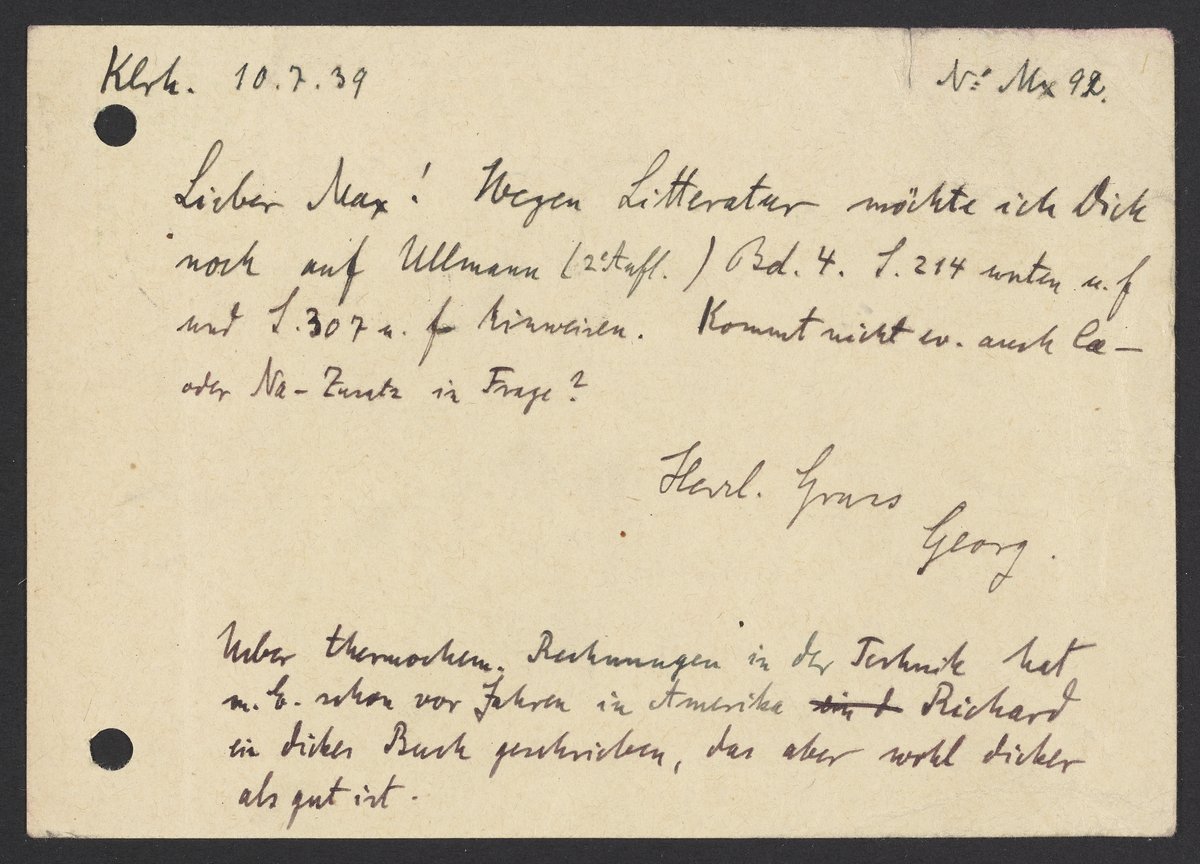 Klrh. 10.7.39 No Mx 92.
Lieber Max! Wegen Litteratur möchte ich Dich
noch auf Ullmann (2e Aufl.) Bd. 4. S. 214 unten u. f
und S. 307 u. f hinweisen. Kommt nicht ev. auch Ca-
oder Na-Zusatz in Frage?
Herzl. Gruss
Georg.
Ueber thermochem. Rechnungen in der Technik hat
m. E. schon vor Jahren in Amerika ein d Richard
ein dickes Buch geschrieben, das aber wohl dicker
als gut ist.